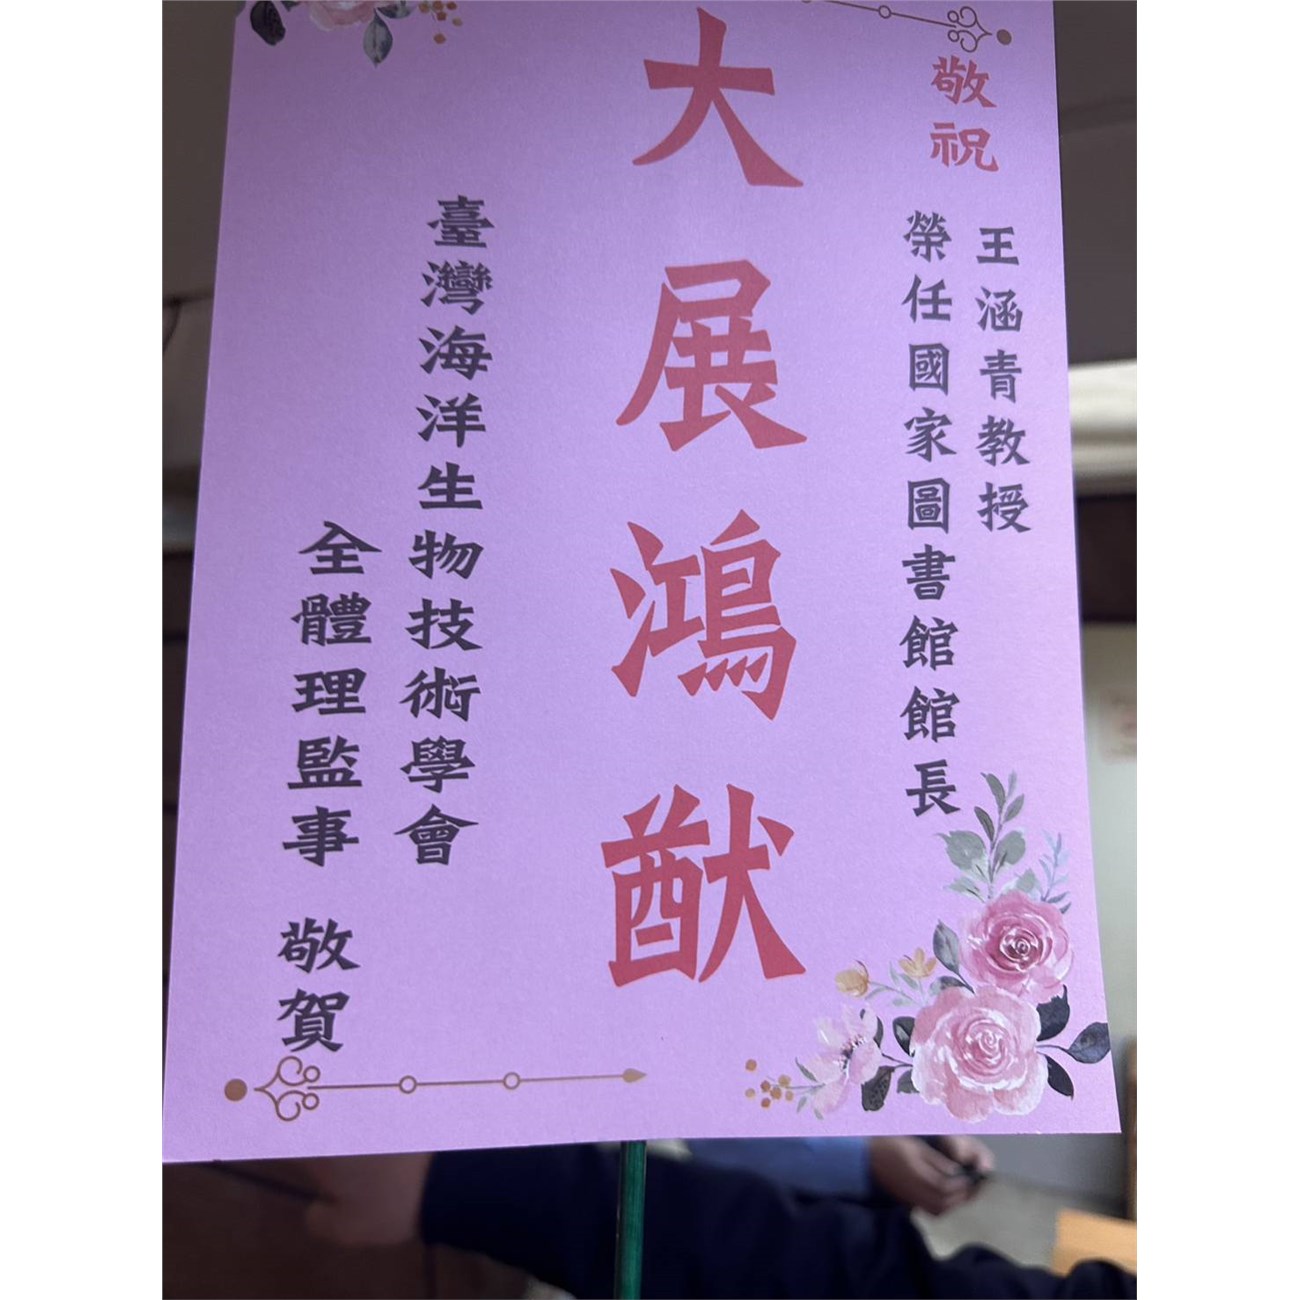 敬祝
王涵青教授
榮任國家圖書館館長
大展鴻猷
臺灣海洋生物技術學會
全體理監事 敬賀